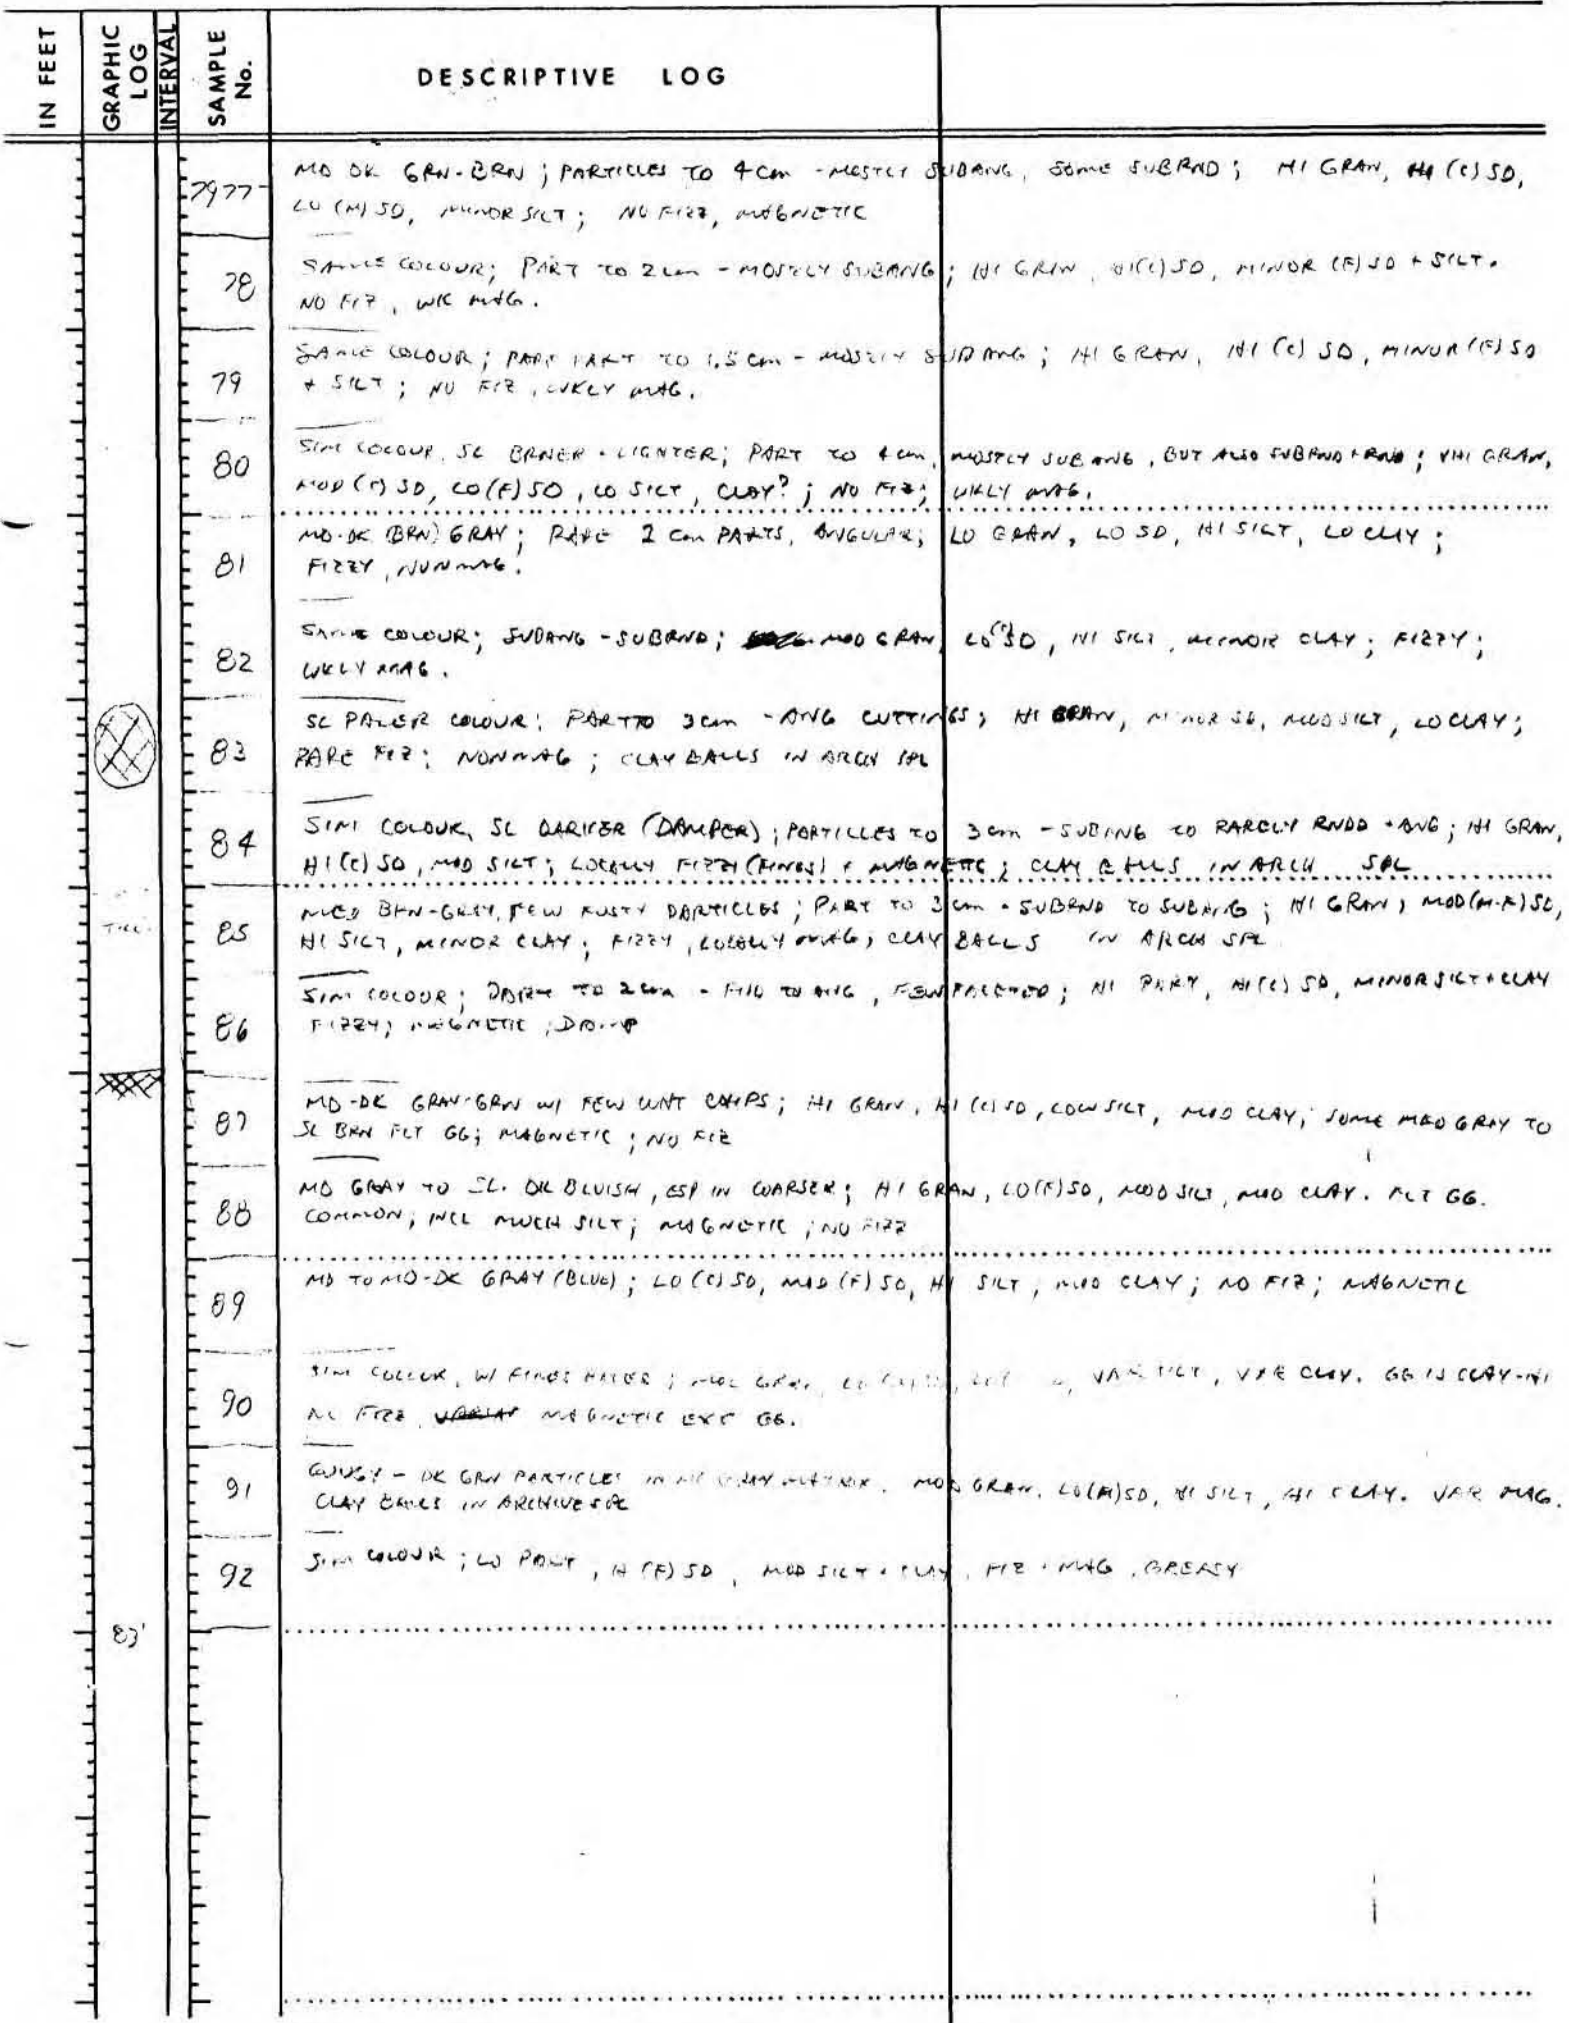 IN FEET
GRAPHIC LOG
INTERVAL
SAMPLE No.
DESCRIPTIVE LOG
7977
MD DK GRN-BRN; PARTICLES TO 4 cm - MOSTLY SUBANG, SOME SUBRND; HI GRAN, HI (C) SD,
LO (M) SD, MINOR SILT; NO FIZZ, MAGNETIC
78
SAME COLOUR; PART TO 2 cm - MOSTLY SUBANG; HI GRAN, HI (C) SD, MINOR (F) SD + SILT.
NO FIZ, WK MAG.
79
SAME COLOUR; PART TO 1.5 cm - MOSTLY SUBANG; HI GRAN, HI (C) SD, MINOR (F) SD
+ SILT; NO FIZ, WKLY MAG.
80
SIM COLOUR, SL BRNER + LIGHTER; PART TO 4 cm, MOSTLY SUBANG, BUT ALSO SUBRND + RND; VHI GRAN,
MOD SD, LO (F) SD, LO SILT, CLAY?; NO FIZ; WKLY MAG.
81
MD-DK (BRN) GRAY; RARE 2 cm PARTS, ANGULAR; LO GRAN, LO SD, HI SILT, LO CLAY;
FIZZY, NONMAG.
82
SAME COLOUR; SUBANG - SUBRND; MOD GRAN, LO SD, HI SILT, MINOR CLAY; FIZZY;
WKLY MAG.
83
SL PALER COLOUR; PART TO 3 cm - ANG CUTTINGS; HI GRAN, MINOR SD, MOD SILT, LO CLAY;
RARE FIZ; NONMAG; CLAY BALLS IN ARCH SPL
84
SIM COLOUR, SL DARKER (DAMPER); PARTICLES TO 3 cm - SUBANG TO RARELY RNDD + ANG; HI GRAN,
HI (C) SD, MOD SILT; LOCALLY FIZZY (FINES) + MAGNETIC; CLAY BALLS IN ARCH SPL
TILL
85
MED BRN-GREY, FEW RUSTY PARTICLES; PART TO 3 cm - SUBRND TO SUBANG; HI GRAN, MOD (M-F) SD,
HI SILT, MINOR CLAY; FIZZY, LOCALLY MAG; CLAY BALLS IN ARCH SPL
86
SIM COLOUR; PART TO 2 cm - TO ANG, FEW FACETED; HI PART, HI (C) SD, MINOR SILT + CLAY
FIZZY; MAGNETIC; DAMP
87
MD-DK GRAY-GRN W/ FEW WHT CHIPS; HI GRAN, HI (C) SD, LOW SILT, MOD CLAY; SOME MED GRAY TO
SL BRN FLT GG; MAGNETIC; NO FIZ
88
MD GRAY TO SL. DK BLUISH, ESP IN COARSER; HI GRAN, LO (F) SD, MOD SILT, MOD CLAY. FLT GG.
COMMON; INCL MUCH SILT; MAGNETIC; NO FIZZ
89
MD TO MD-DK GRAY (BLUE); LO (C) SD, MOD (F) SD, HI SILT, MOD CLAY; NO FIZ; MAGNETIC
90
SIM COLOUR, W/ FINES PALER; GRAN, VAR SILT, VAR CLAY. GG IS CLAY-HI
NO FIZZ, MAGNETIC EXC GG.
91
GOUGY - DK GRN PARTICLES IN GRAY MATRIX. MOD GRAN, LO (M) SD, HI SILT, HI CLAY. VAR MAG.
CLAY BALLS IN ARCHIVE SPL
92
SIM COLOUR; LO PART, HI (F) SD, MOD SILT + CLAY, FIZ + MAG, GREASY
83'